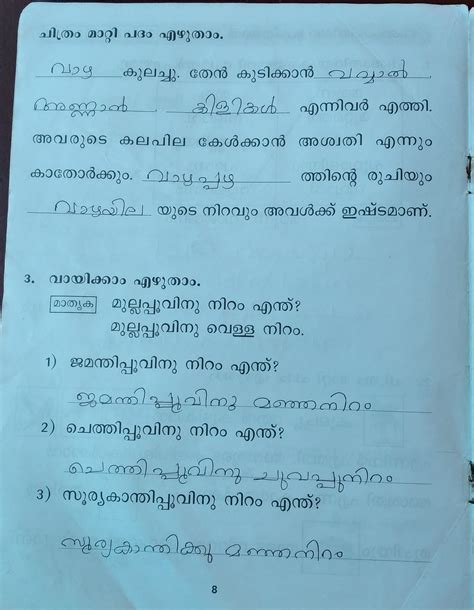 ചിത്രം മാറ്റി പദം എഴുതാം.
വാഴ കുലച്ചു. തേൻ കുടിക്കാൻ വവ്വാൽ
അണ്ണാൻ കിളികൾ എന്നിവർ എത്തി.
അവരുടെ കലപില കേൾക്കാൻ അശ്വതി എന്നും
കാതോർക്കും. വാഴപ്പഴ ത്തിന്റെ രുചിയും
വാഴയില യുടെ നിറവും അവൾക്ക് ഇഷ്ടമാണ്.
3. വായിക്കാം എഴുതാം.
മാതൃക മുല്ലപ്പൂവിനു നിറം എന്ത്?
മുല്ലപ്പൂവിനു വെള്ള നിറം.
1) ജമന്തിപ്പൂവിനു നിറം എന്ത്?
ജമന്തിപ്പൂവിനു മഞ്ഞനിറം
2) ചെത്തിപ്പൂവിനു നിറം എന്ത്?
ചെത്തിപ്പൂവിനു ചുവപ്പുനിറം
3) സൂര്യകാന്തിപ്പൂവിനു നിറം എന്ത്?
സൂര്യകാന്തിക്കു മഞ്ഞനിറം
8